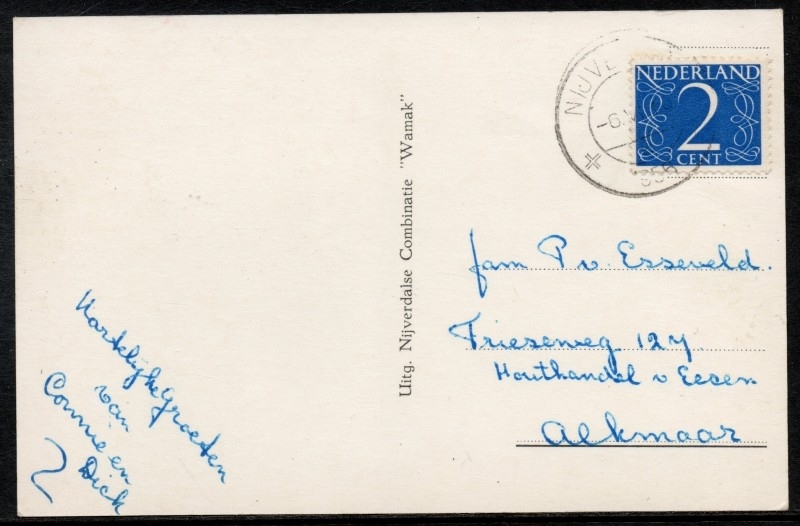 Hartelijke Groeten
van
Connie en
Dick
Uitg. Nijverdalse Combinatie "Wamak"
NIJVE
-6.
956
NEDERLAND
2
CENT
fam P v. Esseveld.
Frieseweg 127
Houthandel v Eesen
Alkmaar